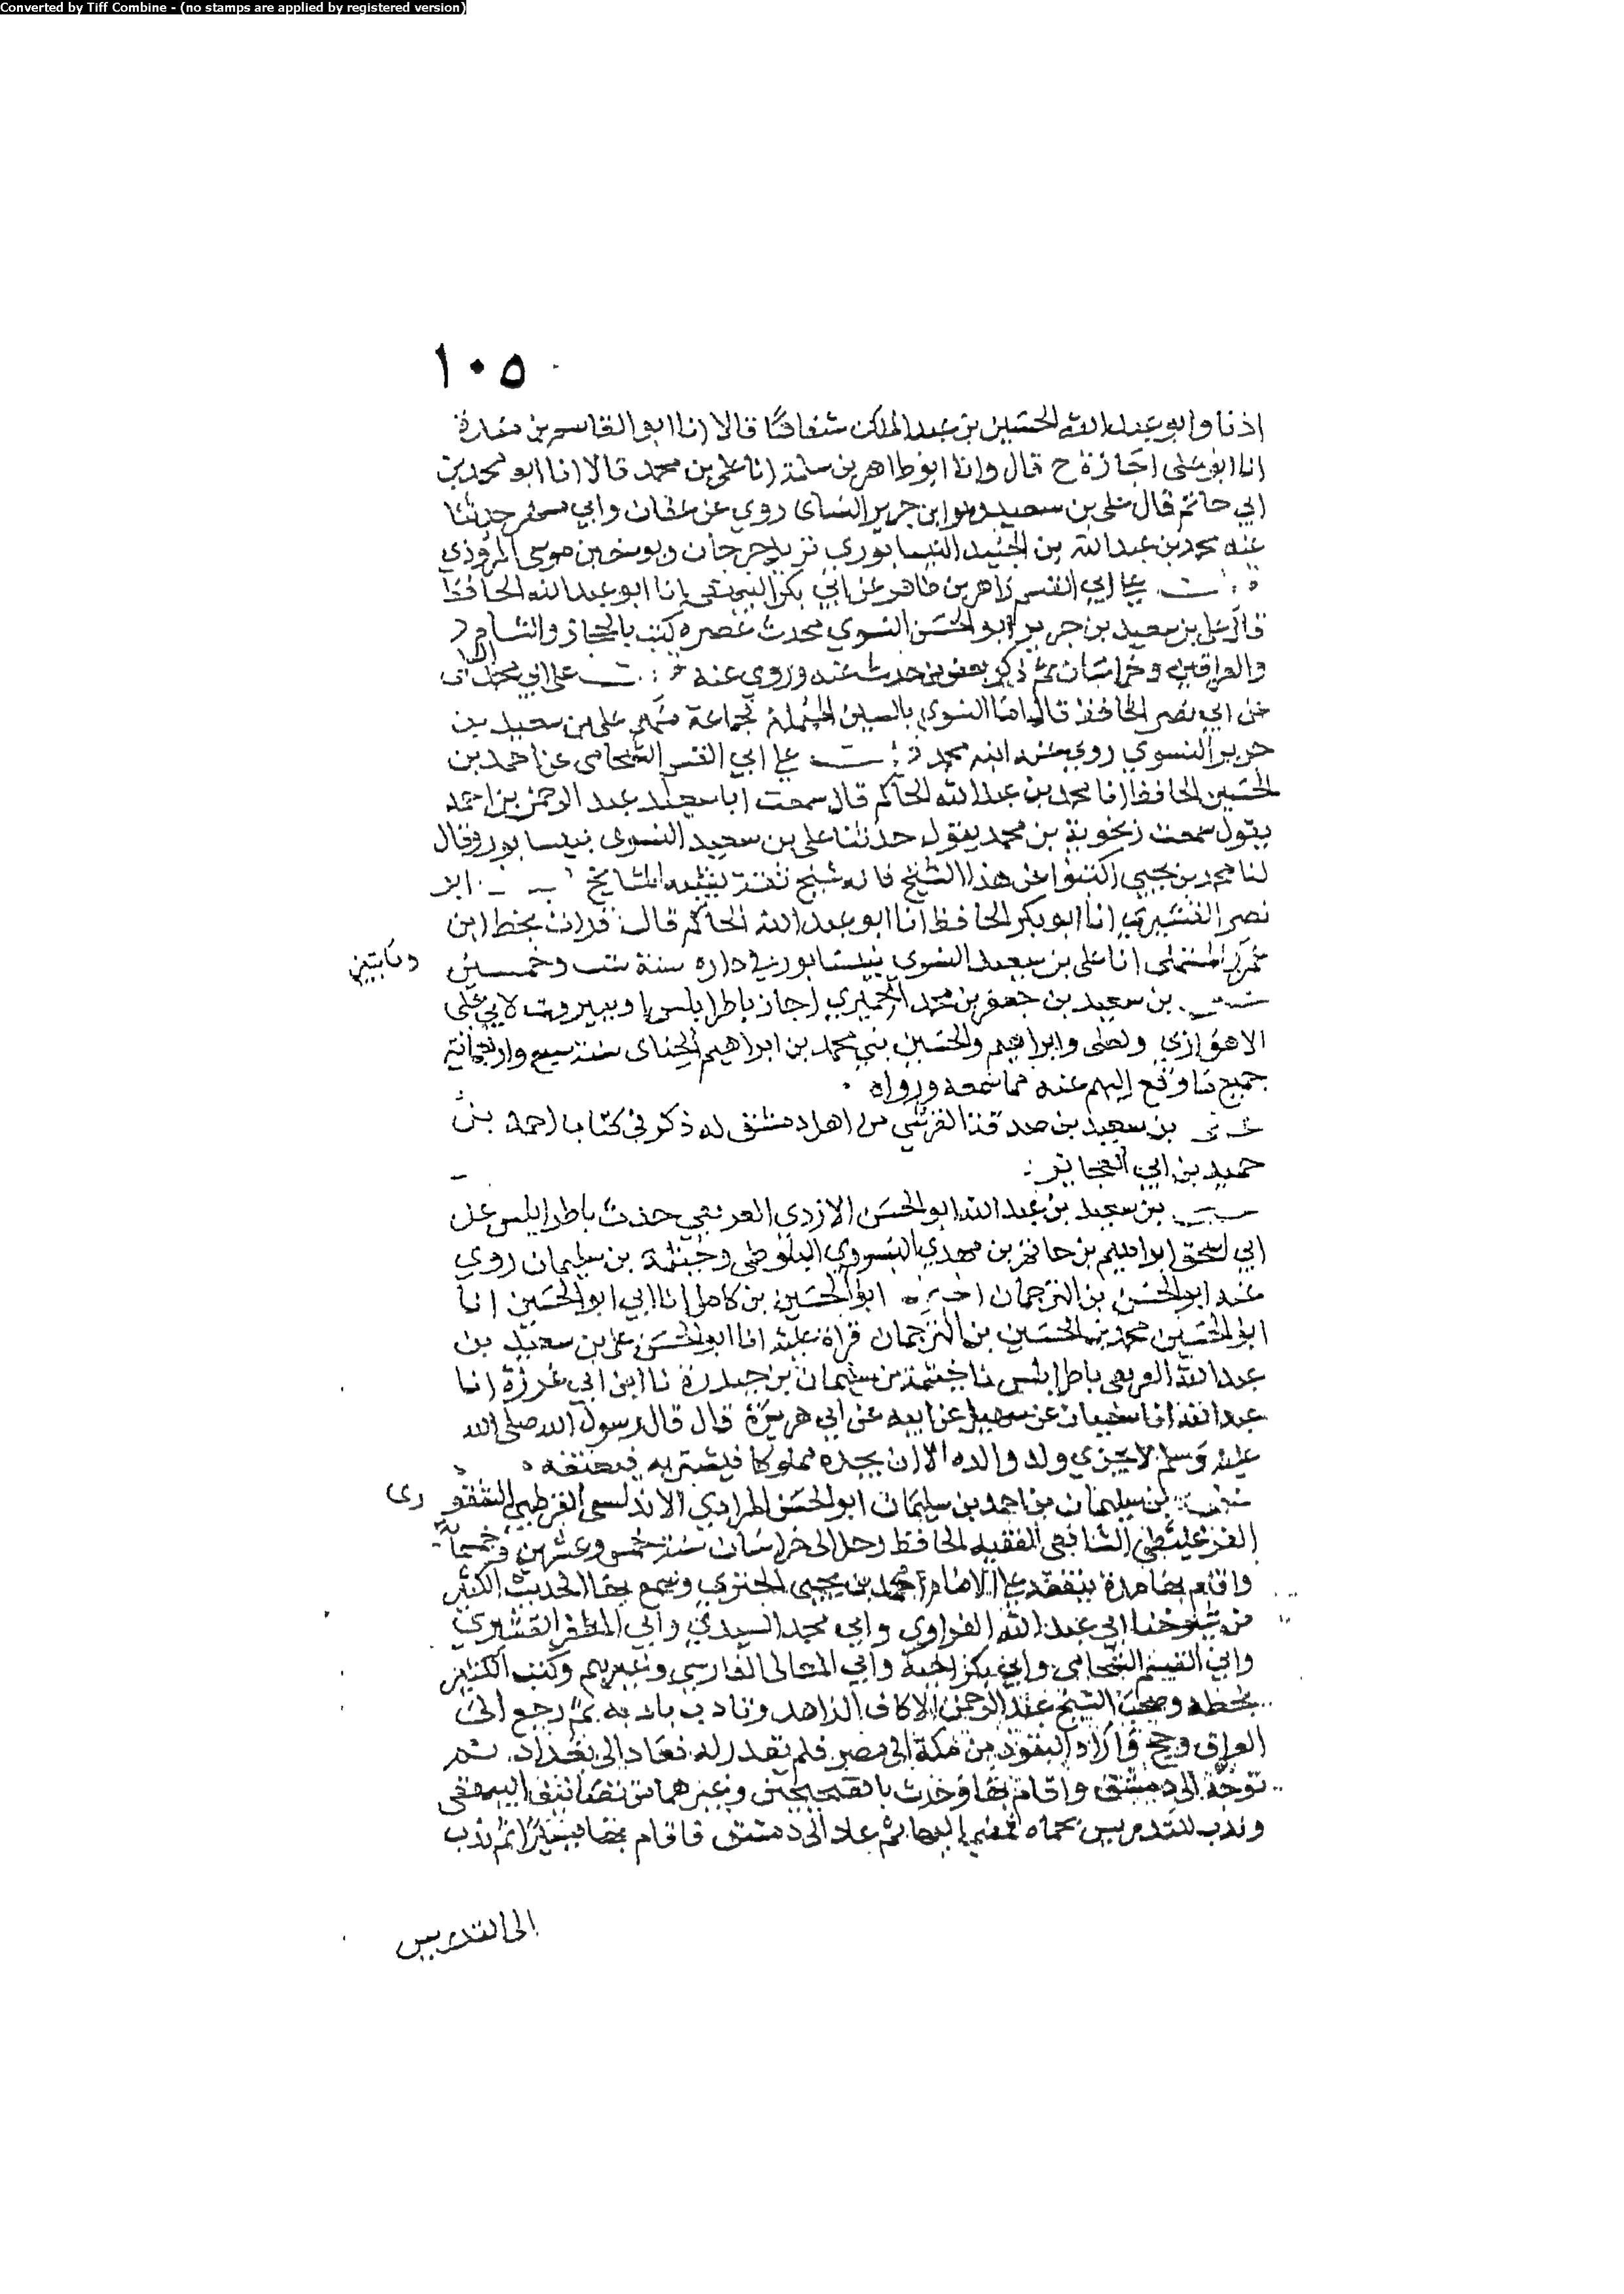 Converted by Tiff Combine - (no stamps are applied by registered version)
١٠٥
اذنا وابو عبد الله الحسين بن عبد الملك شفاها قالا انا ابو القاسم بن منده
انا ابو على اجازة ح قال وانا ابو طاهر بن سلمة انا على بن محمد قالا انا ابو محمد بن
ابي حاتم قال على بن سعيد وهو ابن جرير النساى روي عن عفان وابي مسهر حدثنا
عنه محمد بن عبد الله بن الجنيد النيسابوري نزيل جرجان ويوسف بن موسى المروذي
على ابي القسم زاهر بن طاهر عن ابي بكر البيهقي انا ابو عبد الله الحافظ
قال على بن سعيد بن جرير ابو الحسن النسوي محدث عصره كتب بالحجاز والشام
والعراقين وخراسان ثم ذكر بعض من حدث عنه وروي عنه على ابي محمد
عن ابي نصر الحافظ قال اما النسوي بالسين المهملة فجماعة منهم على بن سعيد بن
جرير النسوي روي عنه ابنه محمد على ابي القسم الشحامى عن احمد بن
الحسين الحافظ انا محمد بن عبد الله الحاكم قال سمعت ابا سعيد عبد الرحمن بن احمد
يقول سمعت زنجوية بن محمد يقول حدثنا على بن سعيد النسوى بنيسابور وقال
لنا محمد بن يحيى اكتبوا عن هذا الشيخ فانه شيخ ثقة يشبه المشايخ
نصر القشيري انا ابو بكر الحافظ انا ابو عبد الله الحاكم قال قرات بخط ابن
عمرو المستملى انا على بن سعيد النسوي بنيسابور في داره سنة ست وخمسين
ومايتين
بن سعيد بن جعفر بن محمد الحميري اجاز باطرابلس او ببيروت لابي على
الاهوازي وعلى وابراهيم والحسين بني محمد بن ابراهيم الحناى سنة سبع واربعمائة
جميع ما وقع اليهم عنه مما سمعه ورواه
بن سعيد بن صدقة القرشي من اهل دمشق له ذكر في كتاب احمد بن
حميد بن ابي العجايز
بن سعيد بن عبد الله ابو الحسن الازدى حدث باطرابلس عن
ابي اسحق ابراهيم بن حاتم بن مهدي التستري البلوطى وخيثمة بن سليمان روي
عنه ابو الحسن بن الترجمان ابو الحسين بن كامل انا ابي ابو الحسين انا
ابو الحسين محمد بن الحسين بن الترجمان قراة عليه انا ابو الحسن على بن سعيد بن
عبد الله باطرابلس نا خيثمة بن سليمان بن حيدرة نا ابن ابي غرزة انا
عبد الله انا سفيان عن سهيل عن ابيه عن ابي هريرة قال قال رسول الله صلى الله
عليه وسلم لا يجزي ولد والده الا ان يجده مملوكا فيشتريه فيعتقه
بن سليمان بن احمد بن سليمان ابو الحسن المرادي الاندلسى القرطبي الشقورى
الفرغليطي الشافعى الفقيه الحافظ رحل الى خراسان سنة خمس وعشرين وخمسمائة
واقام بها مدة يتفقه على الامام محمد بن يحيى الجنزي وسمع بها الحديث الكثير
من شيوخنا ابي عبد الله الفراوي وابي محمد السيدي وابي المظفر القشيري
وابي القسم الشحامى وابي بكر وابي المعالى الفارسي وغيرهم وكتب الكثير
بخطه وصحب الشيخ عبد الرحمن الاكاف الزاهد وتادب بادبه ثم رجع الى
العراق وحج واراد النفوذ من مكة الى مصر فلم يقدر له فعاد الى بغداد ثم
توجه الى دمشق واقام بها وحدث بالصحيحين وغيرهما من تصانيف البيهقى
وندب للتدريس بحماه فمضي اليها ثم عاد الى دمشق فاقام بها يسيرا ثم ندب
الى التدريس